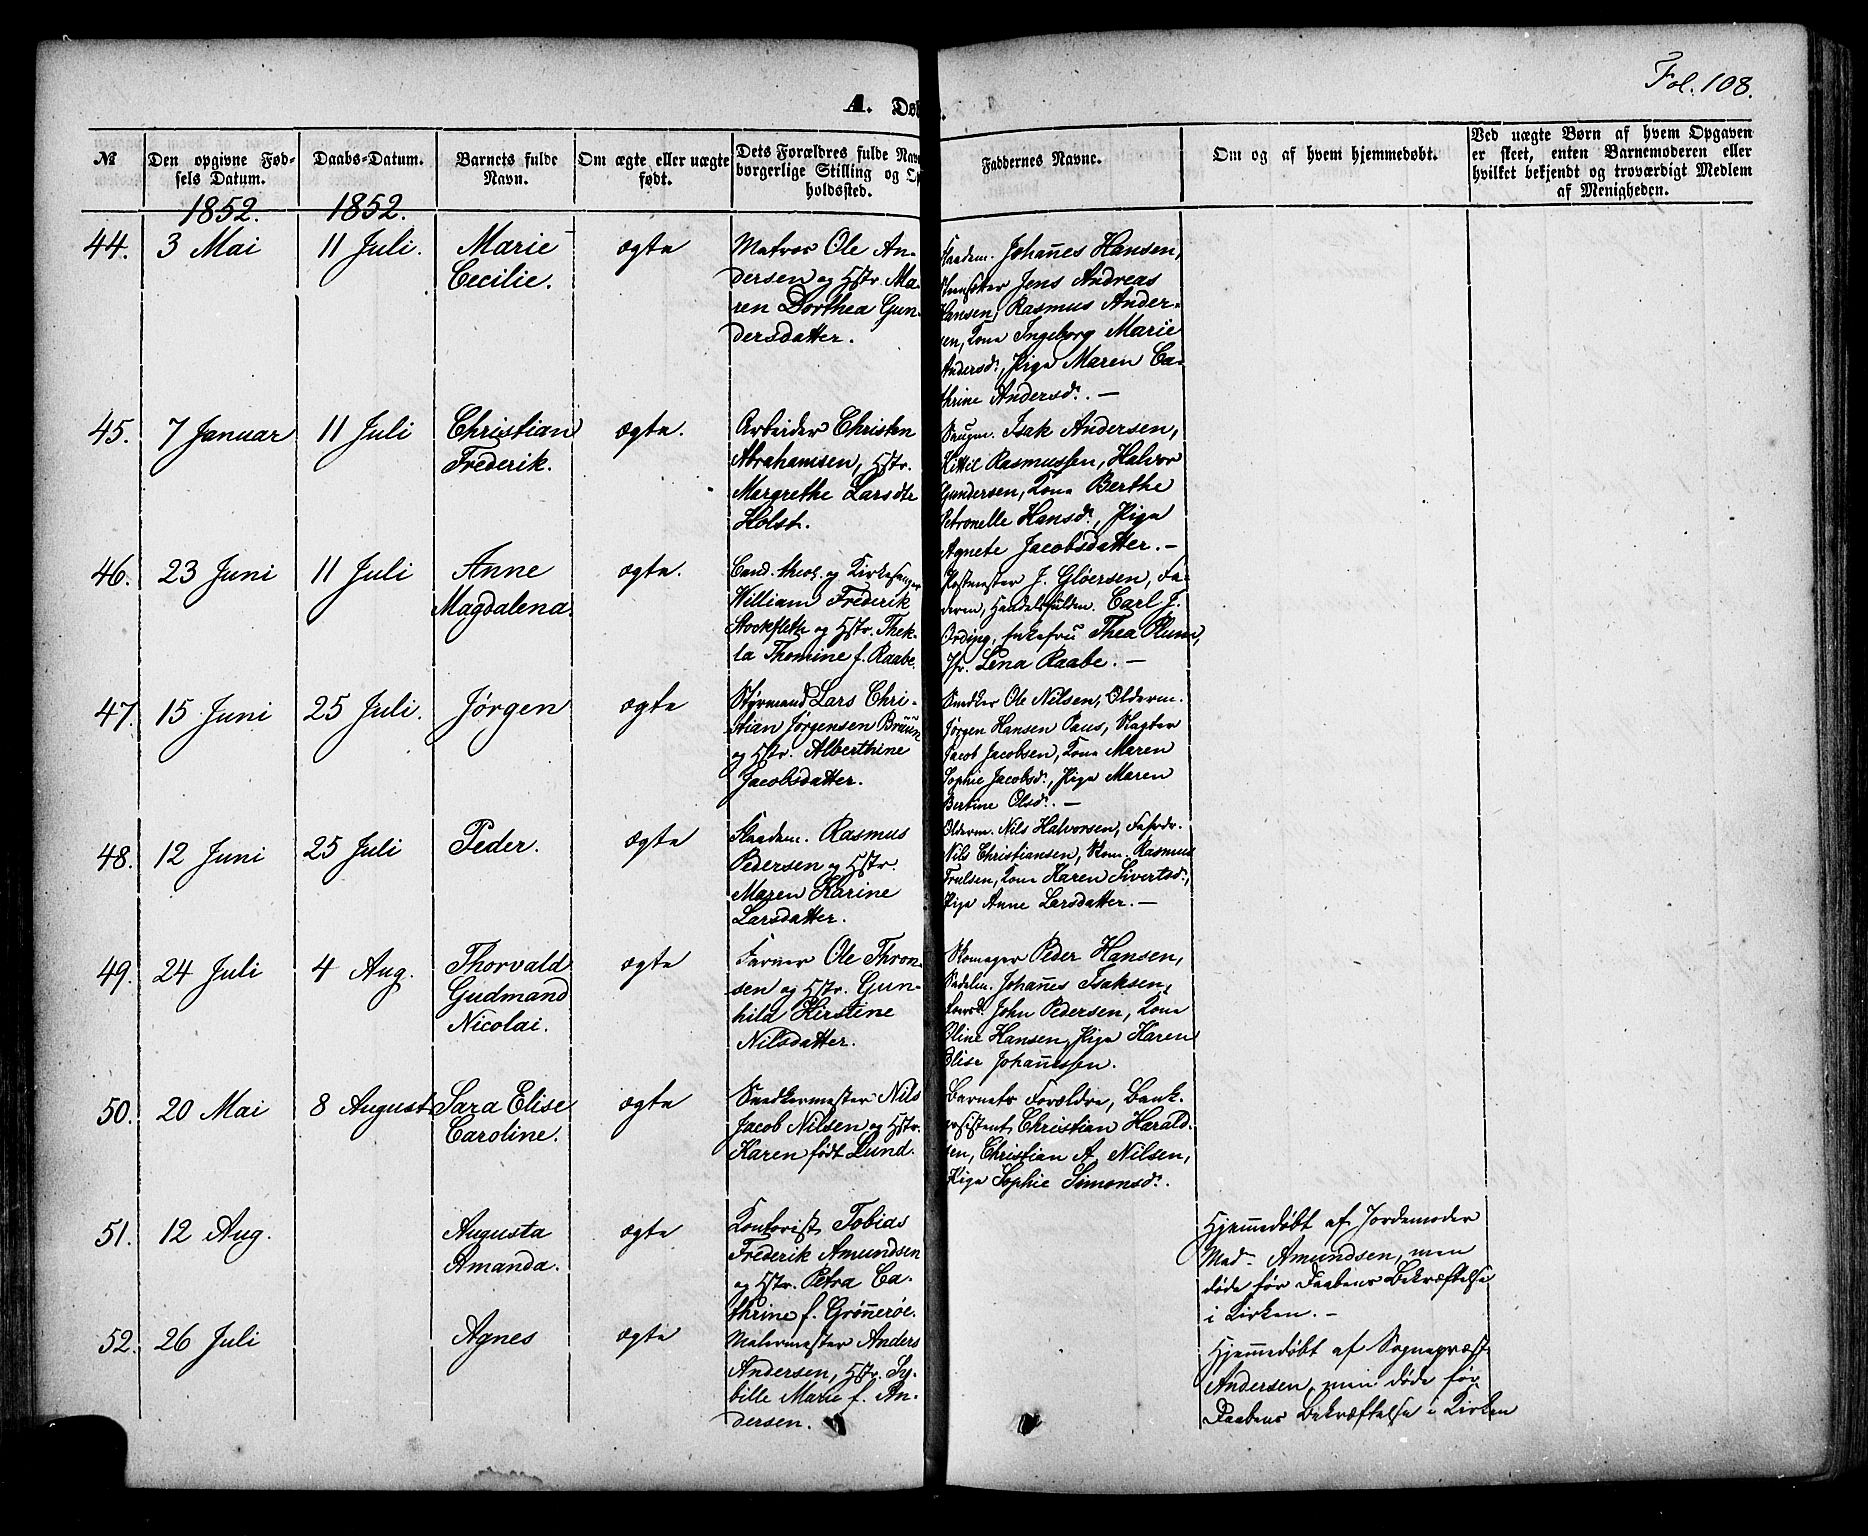 Fol. 108.
A. Døb
№
Den opgivne Fødsels Datum.
Daabs-Datum.
Barnets fulde Navn.
Om ægte eller uægte født.
Dets Forældres fulde Nav
borgerlige Stilling og Op
holdssted.
Faddernes Navne.
Om og af hvem hjemmedøbt.
Ved uægte Børn af hvem Opgaven
er skeet, enten Barnemoderen eller
hvilket bekjendt og troværdigt Medlem
af Menigheden.
1852. 1852.
44. 3 Mai 11 Juli. Marie
Cecilie.
ægte
Matros Ole An-
dersen og Hstr. Ma-
ren Dorthea Gun-
dersdatter.
Johan̄es Hansen,
Jens Andreas
Hansen, Rasmus Ander-
sen, Kone Ingeborg Marie
Andersd., Pige Maren Ca-
thrine Andersd. –
45. 7 Januar 11 Juli Christian
Frederik.
ægte.
Arbeider Christen
Abrahamsen, Hstr.
Margrethe Larsdtr
Holst.
Isak Andersen,
Kittil Rasmussen, Halvor
Gundersen, Kone Berthe
Petronelle Hansd., Pige
Agnete Jacobsdatter. –
46. 23 Juni 11 Juli Anne
Magdalena
ægte.
Cand. theol. og Kirkesanger
William Frederik
Stockfleth og Hstr. Thek-
la Thomine f. Raabe.
Postmester J. Gløersen, Fa-
deren, Handelsfuldm. Carl J.
Ording, Enkefru Thea Plum,
Jfr. Lena Raabe. –
47. 15 Juni 25 Juli. Jørgen
ægte
Styrmand Lars Chri-
stian Jørgensen Bruun
og Hstr. Alberthine
Jacobsdatter.
Snedker Ole Nilsen, Olderm.
Jørgen Hansen Paus, Slagter
Jacob Jacobsen, Kone Maren
Sophie Jacobsd., Pige Maren
Bertine Olsd. –
48. 12 Juni 25 Juli Peder.
ægte
Rasmus
Pedersen og Hstr.
Maren Karine
Larsdatter.
Olderm. Nils Halvorsen,
Nils Christiansen, Skom. Rasmus
Trulsen, Kone Karen Sivertsd.,
Pige Anne Larsdatter. –
49. 24 Juli 4 Aug. Thorvald
Gudmand
Nicolai.
ægte
Farver Ole Thron-
sen og Hstr. Gun-
hild Kirstine
Nilsdatter.
Skomager Peder Hansen,
Sadelm. Johan̄es Isaksen,
John Pedersen, Kone
Oline Hansen, Pige Karen
Elise Johan̄essen.
50. 20 Mai 8 August Sara Elise
Caroline.
ægte
Snedkermester Nils
Jacob Nilsen og Hstr.
Karen født Lund.
Barnets Forældre, Bank-
assistent Christian Harald-
sen, Christian A. Nilsen,
Pige Sophie Simonsd.
51. 12 Aug. Augusta
Amanda.
ægte
Kontorist Tobias
Frederik Amundsen
og Hstr. Petra Ca-
thrine f. Grøn̄erøe.
Hjem̄edøbt af Jordemoder
Mad. Amundsen, men
døde før Daabens Bekræftelse
i Kirken. –
52. 26 Juli Agnes
ægte
Malermester Anders
Andersen, Hstr. Sy-
bille Marie f. An-
dersen.
Hjem̄edøbt af Sognepræst
Andersen, men døde før
Daabens Bekræftelse i Kirken